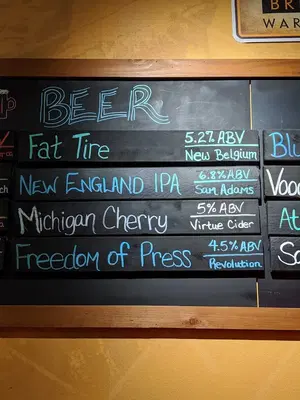 BR
WAR
BEER
Fat Tire 5.2% ABV
New Belgium
NEW ENGLAND IPA 6.8% ABV
Sam Adams
Michigan Cherry 5% ABV
Virtue Cider
Freedom of Press 4.5% ABV
Revolution
Bl
Vood
At
So